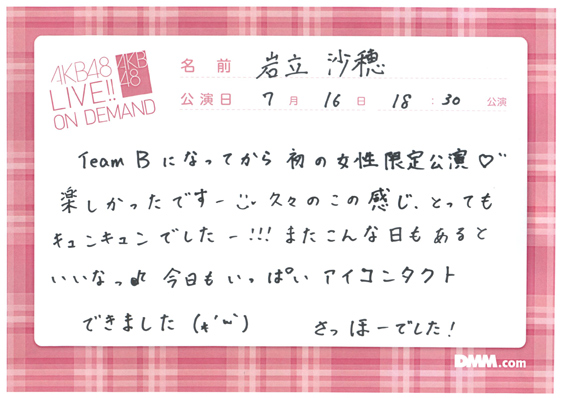 AKB48
LIVE!!
ON DEMAND
AKB
48
名前 岩立 沙穂
公演日 7月16日 18:30 公演
Team Bになってから初の女性限定公演♡
楽しかったですー 久々のこの感じ、とっても
キュンキュンでしたー!!! またこんな日もあると
いいなっ♪ 今日もいっぱいアイコンタクト
できました(*´ω`) さっほーでした!
DMM.com